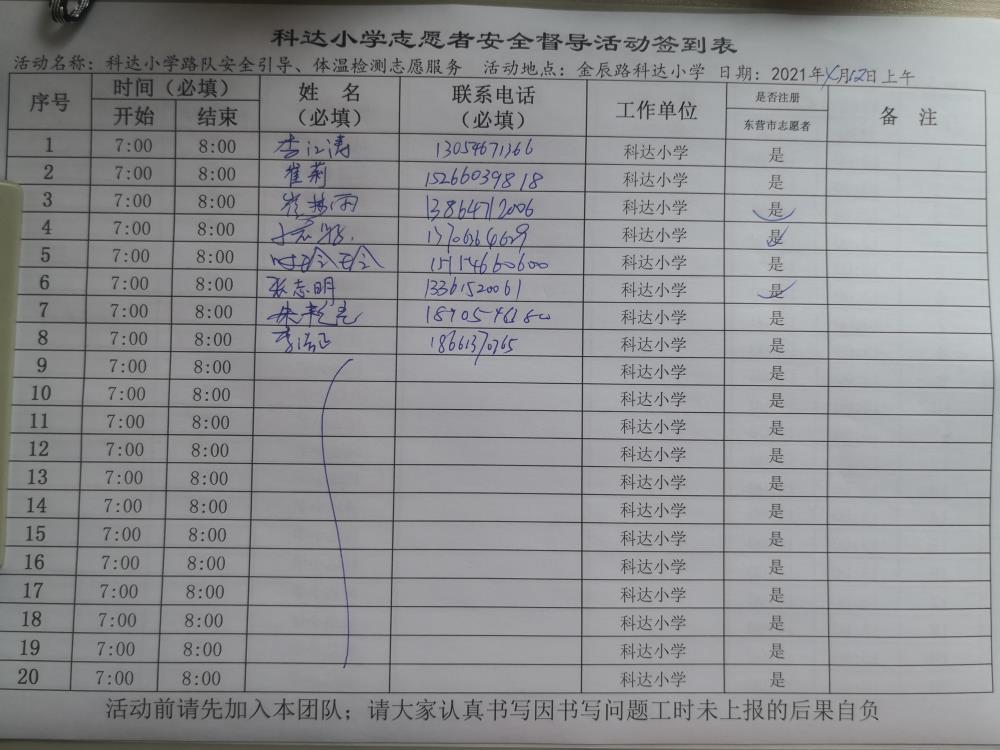 科达小学志愿者安全督导活动签到表
活动名称：科达小学路队安全引导、体温检测志愿服务 活动地点：金辰路科达小学 日期：2021年 月12日上午
序号 时间（必填） 姓 名（必填） 联系电话（必填） 工作单位 是否注册 备 注
开始 结束 东营市志愿者
1 7:00 8:00 李江涛 13054671366 科达小学 是
2 7:00 8:00 崔莉 15266039818 科达小学 是
3 7:00 8:00 13864712006 科达小学 是
4 7:00 8:00 科达小学 是
5 7:00 8:00 15154660600 科达小学 是
6 7:00 8:00 张志明 13361520061 科达小学 是
7 7:00 8:00 科达小学 是
8 7:00 8:00 18661370765 科达小学 是
9 7:00 8:00 科达小学 是
10 7:00 8:00 科达小学 是
11 7:00 8:00 科达小学 是
12 7:00 8:00 科达小学 是
13 7:00 8:00 科达小学 是
14 7:00 8:00 科达小学 是
15 7:00 8:00 科达小学 是
16 7:00 8:00 科达小学 是
17 7:00 8:00 科达小学 是
18 7:00 8:00 科达小学 是
19 7:00 8:00 科达小学 是
20 7:00 8:00 科达小学 是
活动前请先加入本团队；请大家认真书写因书写问题工时未上报的后果自负